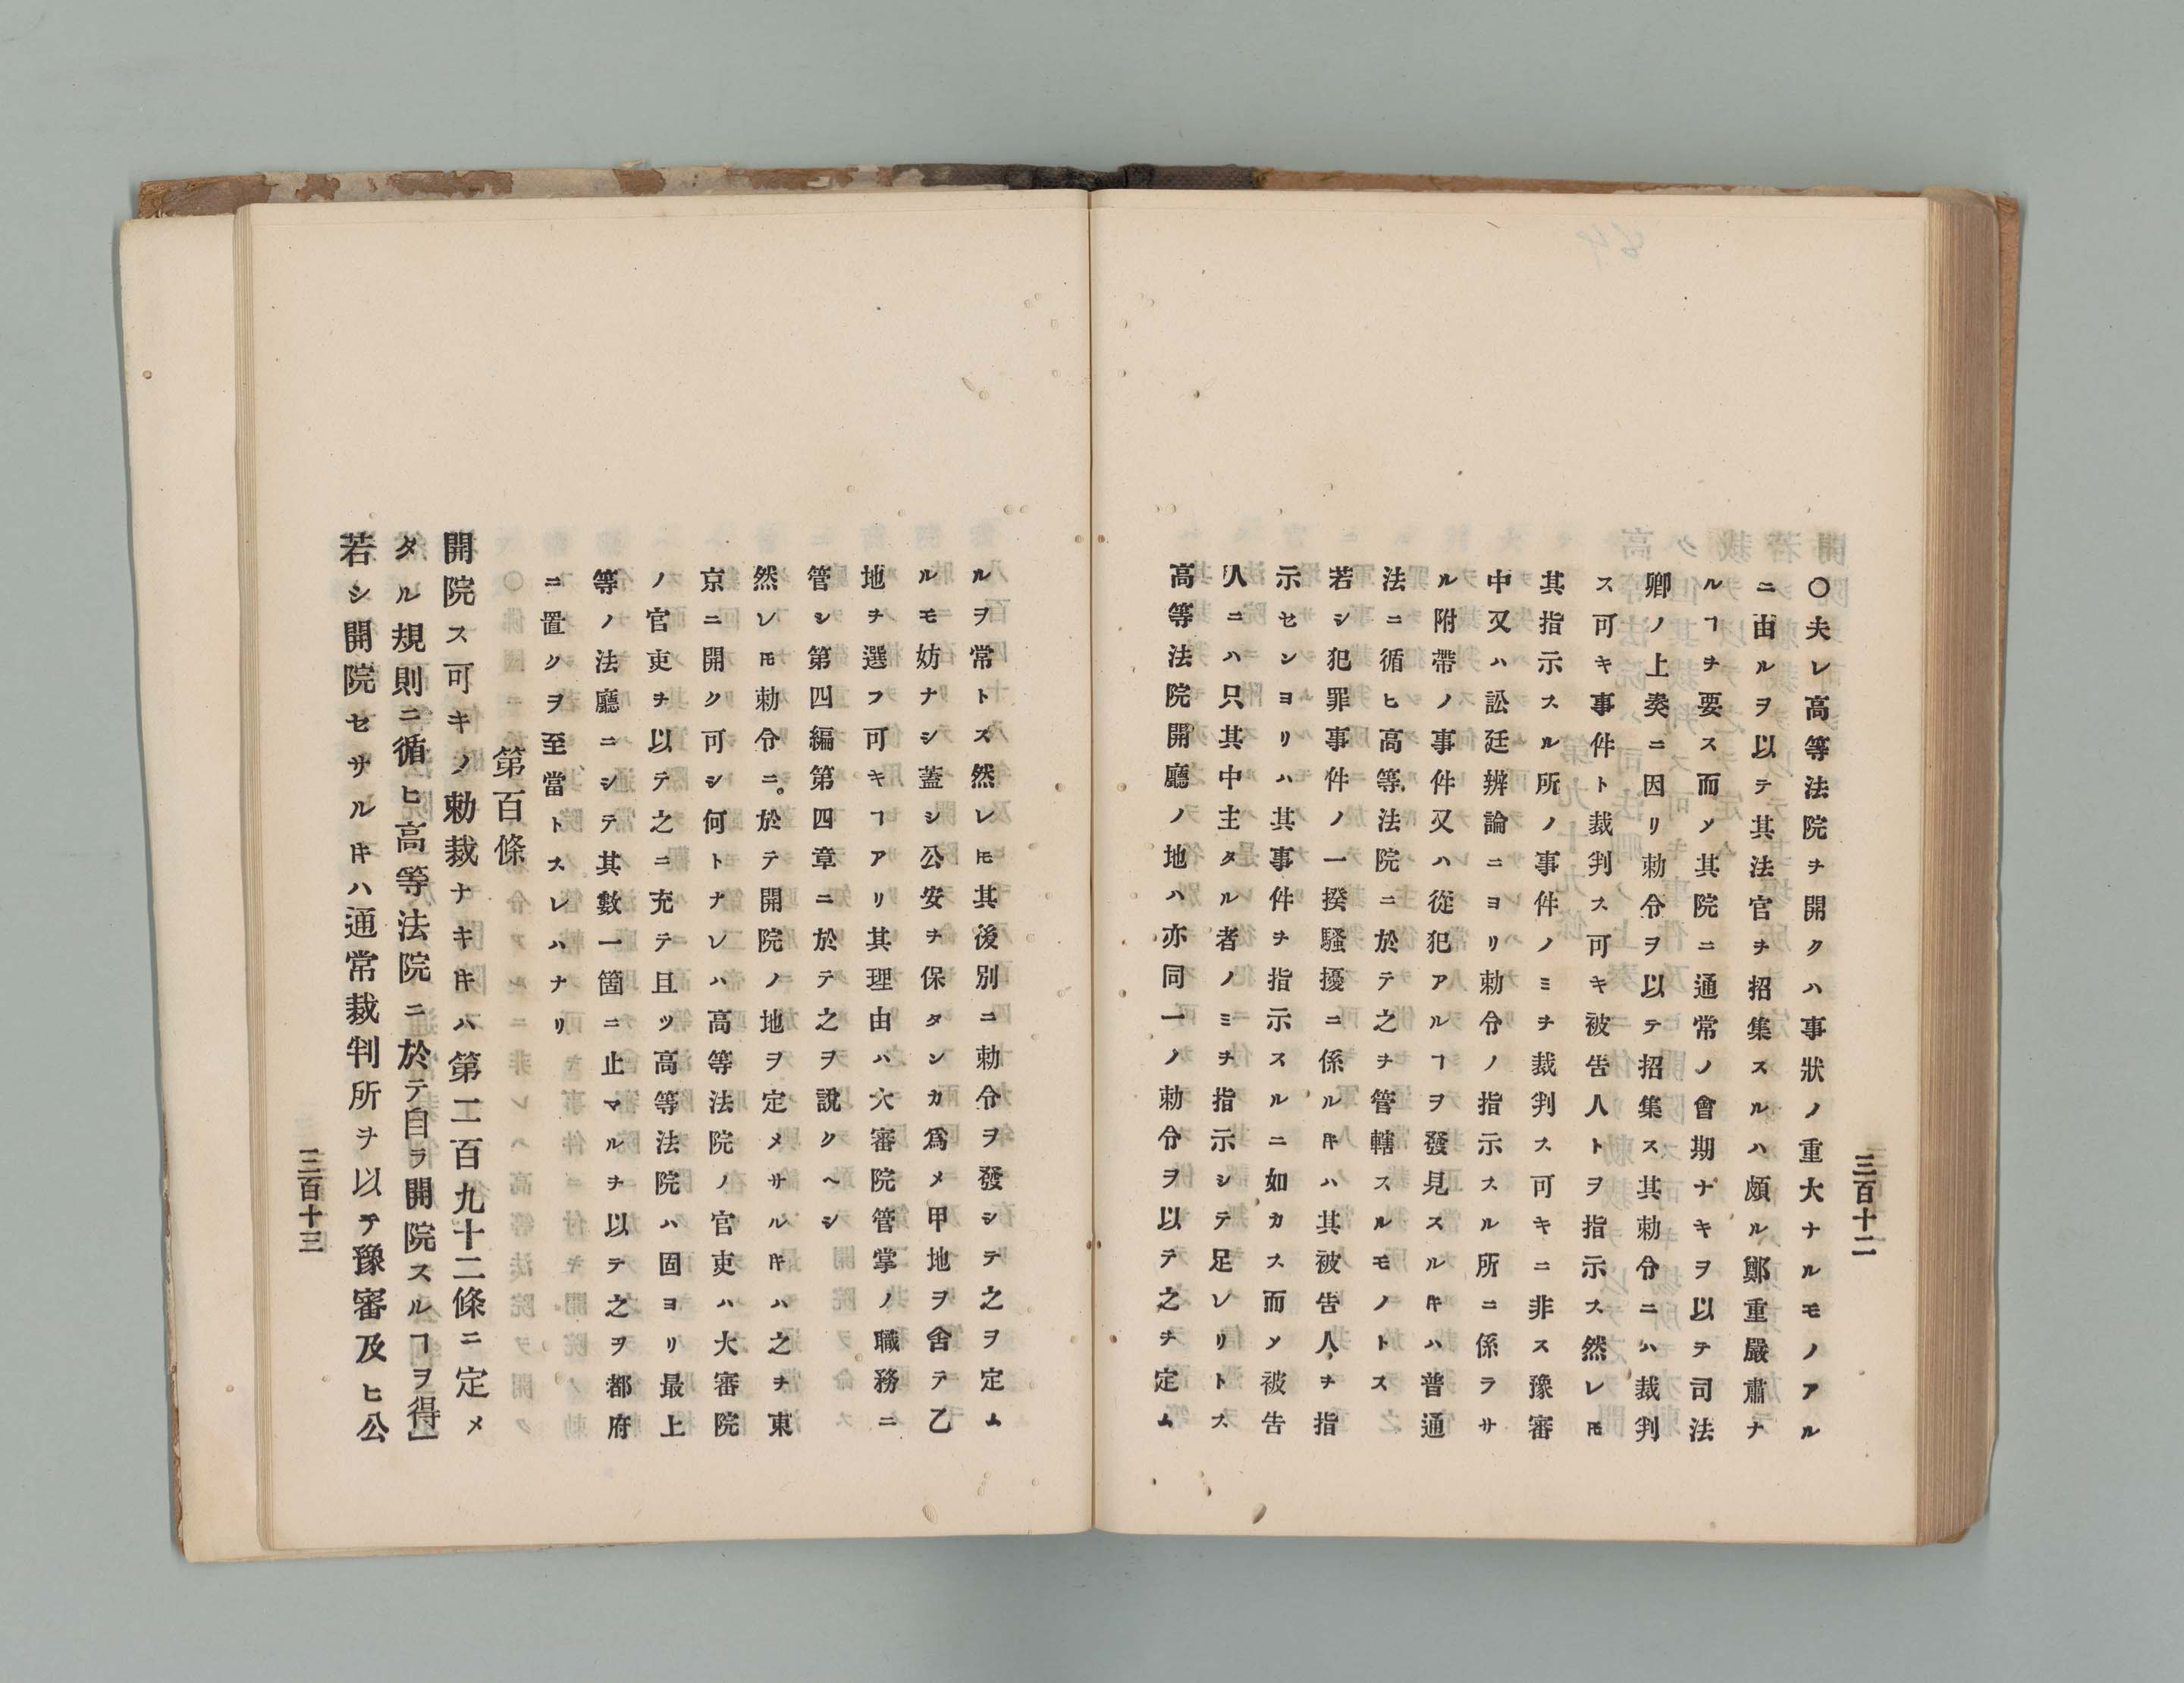 三百十二
〇夫レ高等法院ヲ開クハ事狀ノ重大ナルモノアル
ニ由ルヲ以テ其法官ヲ招集スルハ頗ル鄭重嚴肅ナ
ルヿヲ要ス而〆其院ニ通常ノ會期ナキヲ以テ司法
卿ノ上奏ニ因リ勅令ヲ以テ招集ス其勅令ニハ裁判
ス可キ事件ト裁判ス可キ被吿人トヲ指示ス然レ𪜈
其指示スル所ノ事件ノミヲ裁判ス可キニ非ス豫審
中又ハ訟廷辨論ニヨリ勅令ノ指示スル所ニ係ラサ
ル附帶ノ事件又ハ從犯アルヿヲ發見スルキハ普通
法ニ循ヒ高等法院ニ於テ之ヲ管轄スルモノトス
若シ犯罪事件ノ一揆騷擾ニ係ルキハ其被吿人ヲ指
示センヨリハ其事件ヲ指示スルニ如カス而〆被吿
人ニハ只其中主タル者ノミヲ指示シテ足レリトス
高等法院開廳ノ地ハ亦同一ノ勅令ヲ以テ之ヲ定ム
ルヲ常トス然レ𪜈其後別ニ勅令ヲ發シテ之ヲ定ム
ルモ妨ナシ蓋シ公安ヲ保タンカ爲メ甲地ヲ舍テ乙
地ヲ選フ可キヿアリ其理由ハ大審院管掌ノ職務ニ
管シ第四編第四章ニ於テ之ヲ說クヘシ
然レ𪜈勅令ニ。於テ開院ノ地ヲ定メサルキハ之ヲ東
京ニ開ク可シ何トナレハ高等法院ノ官吏ハ大審院
ノ官吏ヲ以テ之ニ充テ且ツ高等法院ハ固ヨリ最上
等ノ法廳ニシテ其數一箇ニ止マルヲ以テ之ヲ都府
ニ置クヲ至當トスレハナリ
第百條
開院ス可キノ勅裁ナキキハ第二百九十二條ニ定メ
タル規則ニ循ヒ高等法院ニ於テ自ラ開院スルヿヲ得」
若シ開院セサルキハ通常裁判所ヲ以テ豫審及ヒ公
三百十三